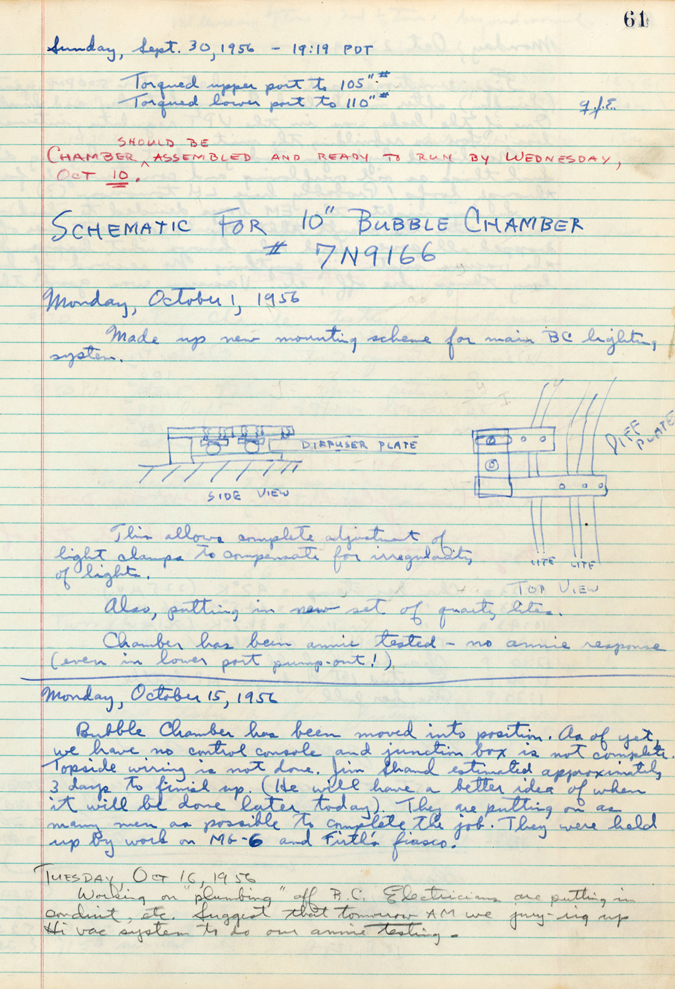 61
Sunday, Sept. 30, 1956 - 19:19 PDT
Torqued upper port to 105"#
Torqued lower port to 110"#
SHOULD BE
CHAMBER ^ ASSEMBLED AND READY TO RUN BY WEDNESDAY,
OCT 10.
SCHEMATIC FOR 10" BUBBLE CHAMBER
# 7N9166
Monday, October 1, 1956
Made up new mounting scheme for main BC lighting
system.
DIFFUSER PLATE
SIDE VIEW
DIFF PLATE
LITE LITE
TOP VIEW
This allows complete adjustment of
light clamps to compensate for irregularity
of lights.
Also, putting in new set of quartz lites.
Chamber has been annie tested - no annie response
(even in lower port pump-out!).
Monday, October 15, 1956
Bubble Chamber has been moved into position. As of yet,
we have no control console and junction box is not complete.
Topside wiring is not done. Jim Shand estimated approximately
3 days to finish up. (He will have a better idea of when
it will be done later today). They are putting on as
many men as possible to complete the job. They were held
up by work on MG-6 and Firth's fiasco.
TUESDAY, OCT 16, 1956
Working on "plumbing" off B.C. Electricians are putting in
conduit, etc. Suggest that tomorrow AM we jury-rig up
Hi vac system to do our annie testing.